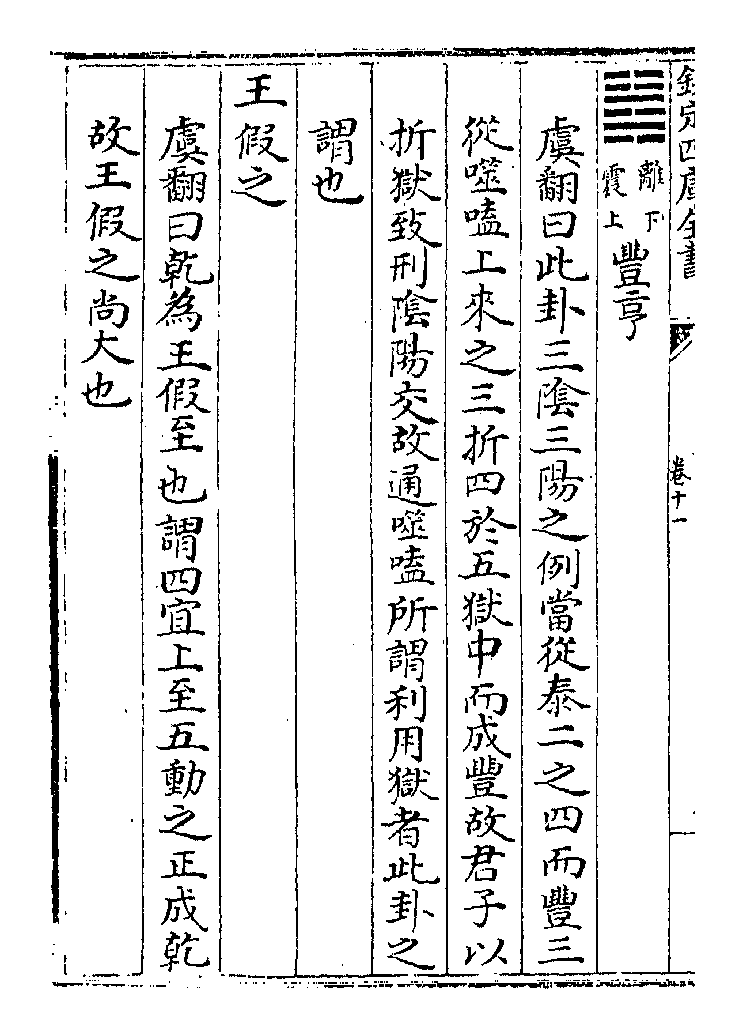 欽定四庫全書
卷十一
離下
震上
豐亨
虞翻曰此卦三陰三陽之例當從泰二之四而豐三
從噬嗑上來之三折四於五獄中而成豐故君子以
折獄致刑陰陽交故通噬嗑所謂利用獄者此卦之
謂也
王假之
虞翻曰乾為王假至也謂四宜上至五動之正成乾
故王假之尚大也